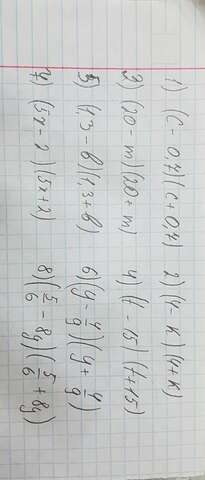 1) (c - 0,7)(c + 0,7) 2) (4 - k)(4+k)
3) (20 - m)(20 + m) 4) (t - 15)(t+15)
5) (1,3 - b)(1,3 + b) 6) (y - 4/9)(y + 4/9)
7) (5x - 2)(5x+2) 8) (5/6 - 8y)(5/6 + 8y)